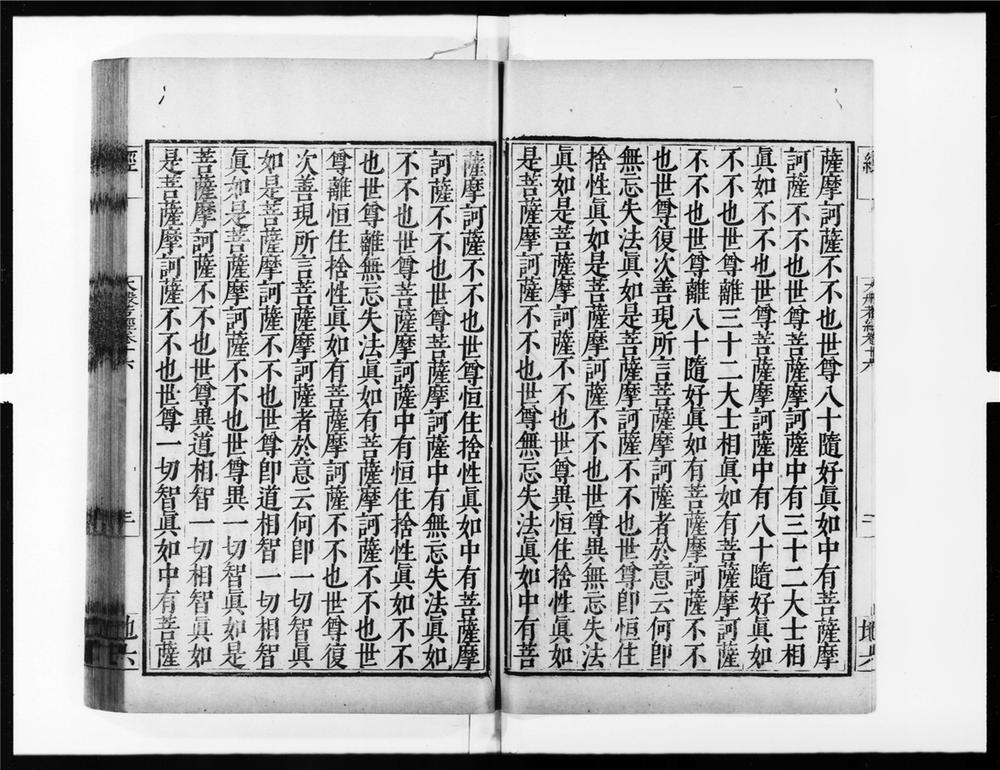 薩摩訶薩不不也世尊八十隨好眞如中有菩薩摩
訶薩不不也世尊菩薩摩訶薩中有三十二大士相
眞如不不也世尊菩薩摩訶薩中有八十隨好眞如
不不也世尊離三十二大士相眞如有菩薩摩訶薩
不不也世尊離八十隨好眞如有菩薩摩訶薩不不
也世尊復次善現所言菩薩摩訶薩者於意云何卽
無忘失法眞如是菩薩摩訶薩不不也世尊卽恒住
捨性眞如是菩薩摩訶薩不不也世尊異無忘失法
眞如是菩薩摩訶薩不不也世尊異恒住捨性眞如
是菩薩摩訶薩不不也世尊無忘失法眞如中有菩
薩摩訶薩不不也世尊恒住捨性眞如中有菩薩摩
訶薩不不也世尊菩薩摩訶薩中有無忘失法眞如
不不也世尊菩薩摩訶薩中有恒住捨性眞如不不
也世尊離無忘失法眞如有菩薩摩訶薩不不也世
尊離恒住捨性眞如有菩薩摩訶薩不不也世尊復
次善現所言菩薩摩訶薩者於意云何卽一切智眞
如是菩薩摩訶薩不不也世尊卽道相智一切相智
眞如是菩薩摩訶薩不不也世尊異一切智眞如是
菩薩摩訶薩不不也世尊異道相智一切相智眞如
是菩薩摩訶薩不不也世尊一切智眞如中有菩薩
經
三
地六